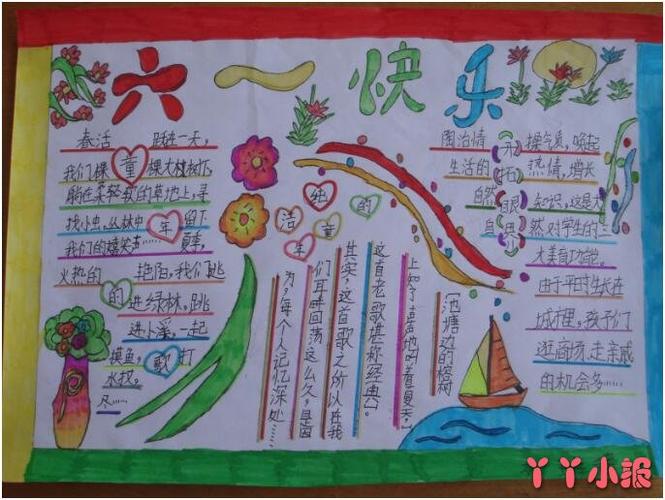 六一快乐
春活 跃在一天,
我们棵童棵大榕树下,
躺在柔轻软的草地上,寻
找小虫,丛林中年留下
我们的嬉笑声……夏季,
火热的 艳阳,我们跳
的进绿林,跳
进小溪,一起
摸鱼,歌打
水找。
尽……
纯洁的童年
池塘边的榕树
上知了在声声地叫着夏天,
这首老歌堪称经典。
其实,这首歌之所以在我
们耳畔回荡这么久,是因
为每个人记忆深处……
陶冶情 开 操气质,唤起
生活的 拓 热情,增长
自然 眼 知识,这是大
自 界 然对学生的
大美育功能。
由于平时生长在
城市里,孩子们
逛商场,走亲戚
的机会多……
丫丫小报